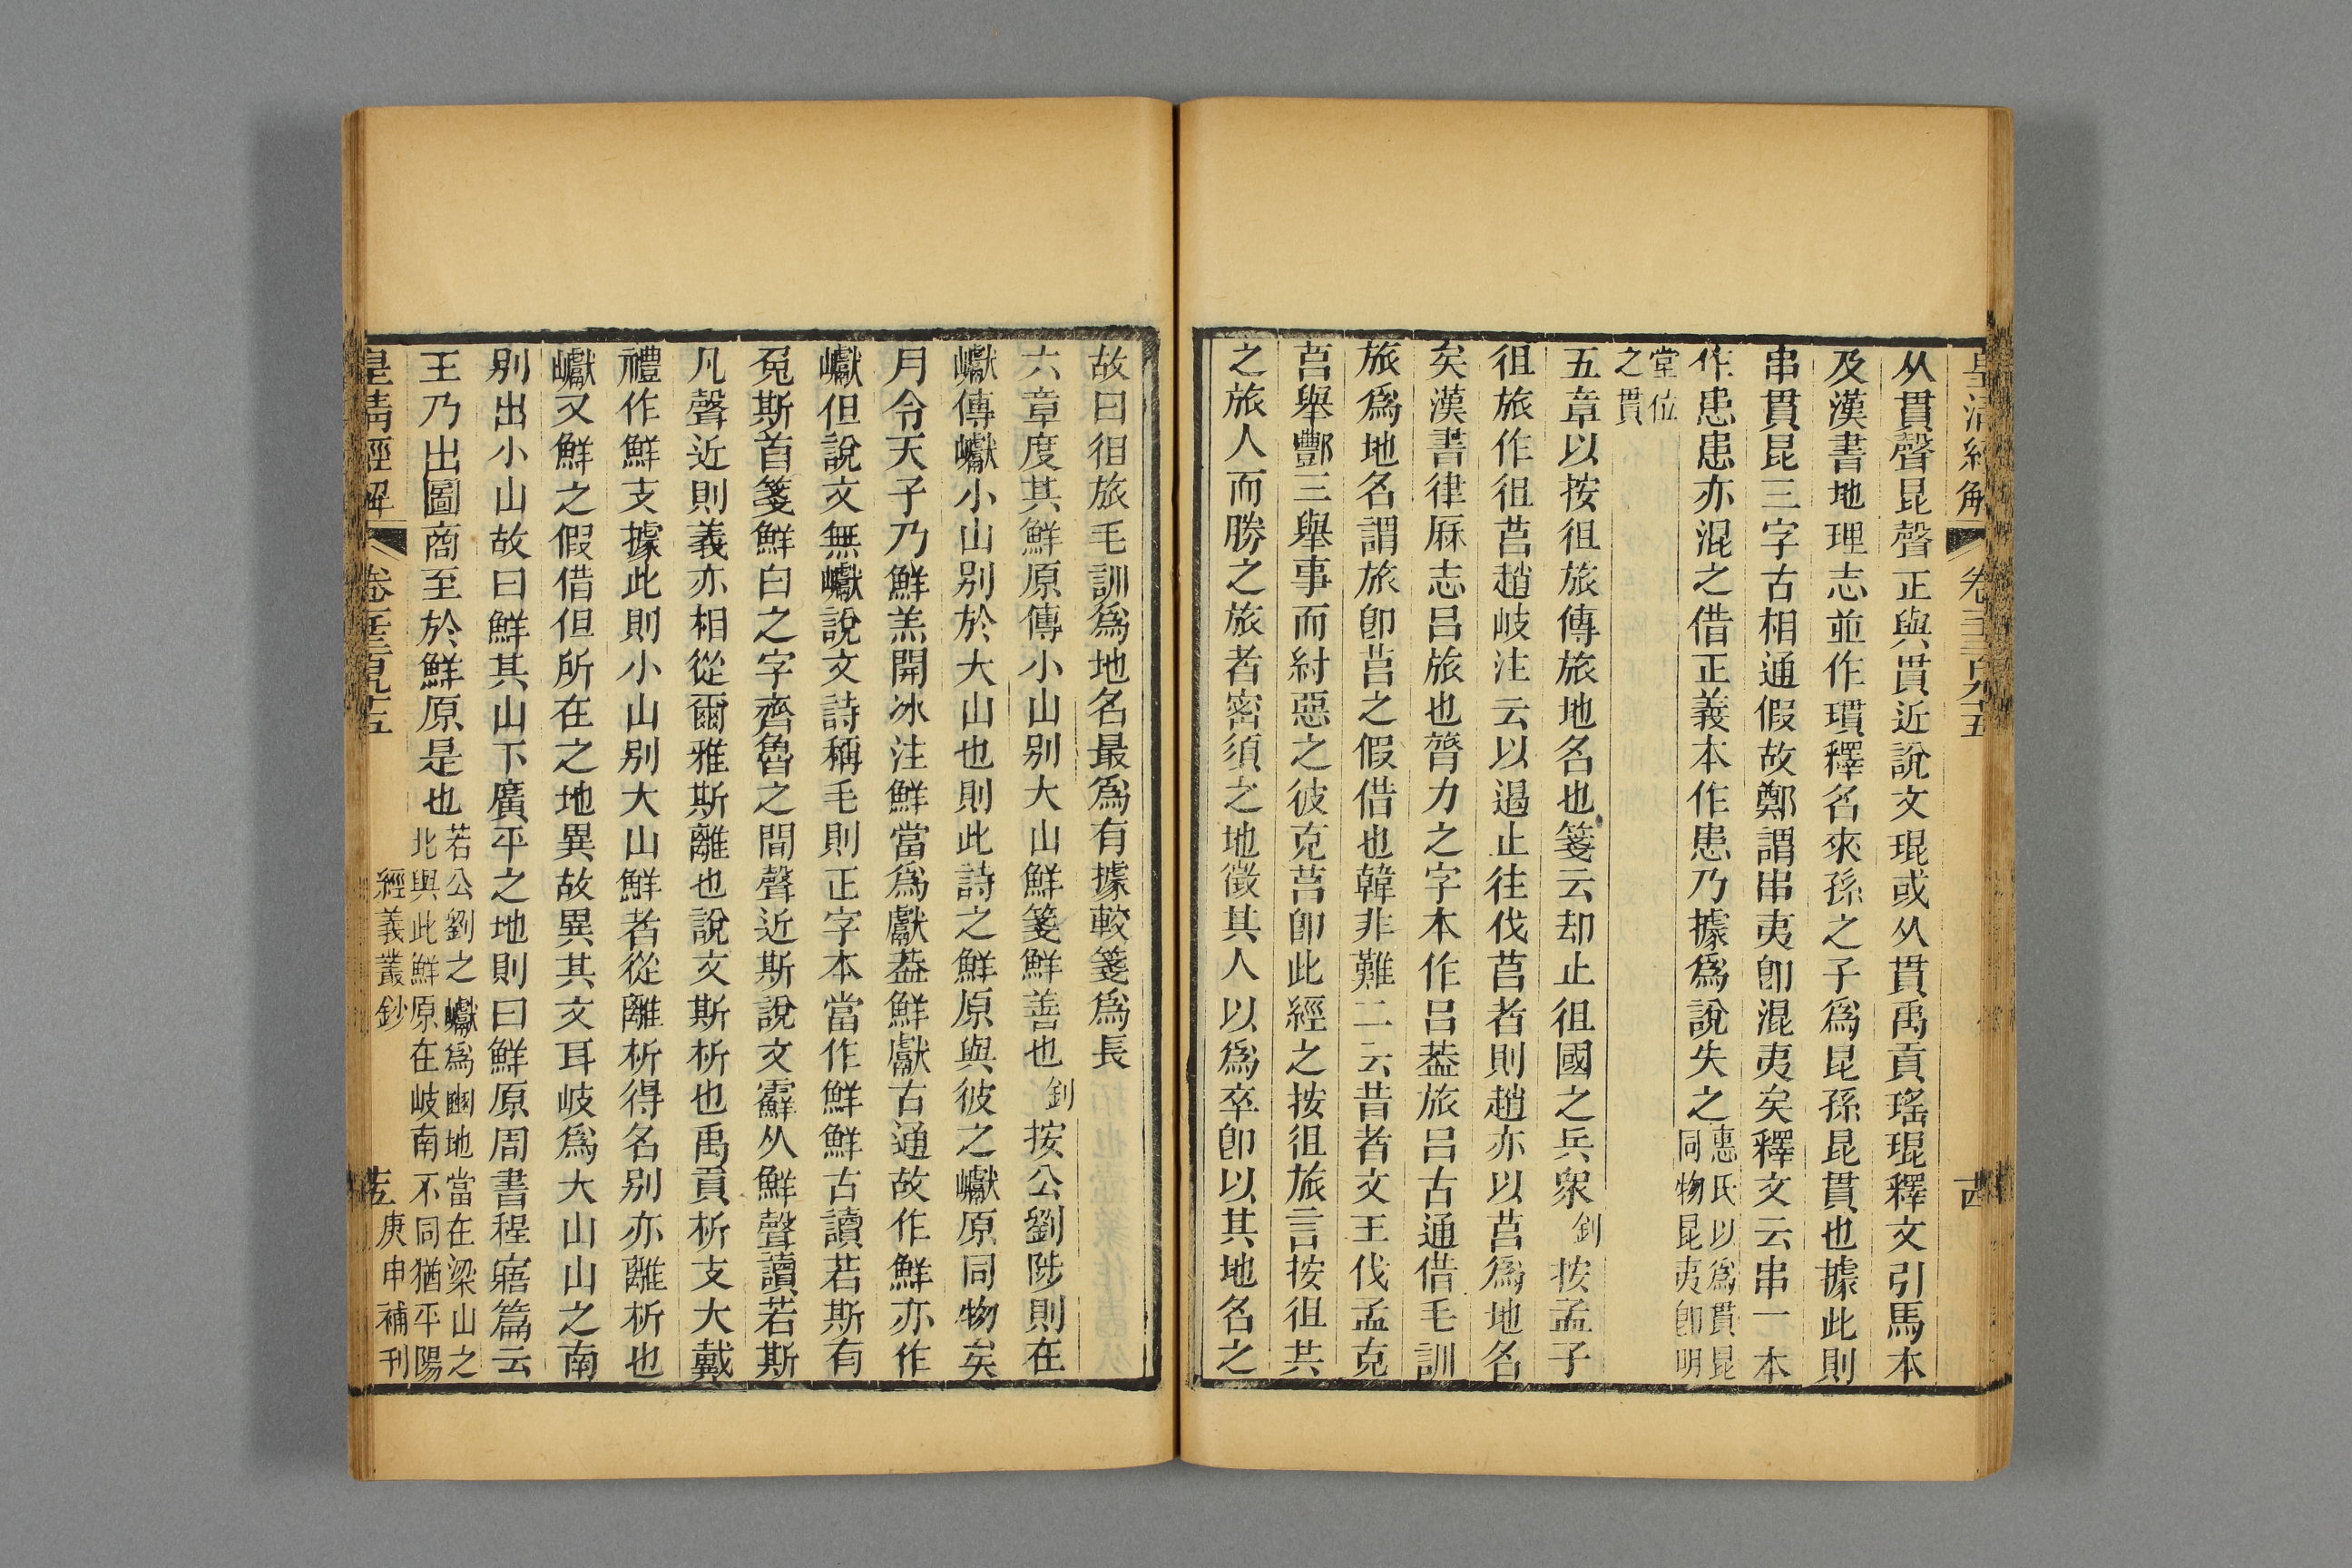 从貫聲昆聲正與貫近說文琨或从貫禹貢瑤琨釋文引馬本
及漢書地理志並作瑻釋名來孫之子爲昆孫昆貫也據此則
串貫昆三字古相通假故鄭謂串夷卽混夷矣釋文云串一本
作患患亦混之借正義本作患乃據爲說失之惠氏以爲貫昆
同物昆夷卽明
堂位
之貫
五章以按徂旅傳旅地名也箋云却止徂國之兵衆釗按孟子
徂旅作徂莒趙岐注云以遏止往伐莒者則趙亦以莒爲地名
矣漢書律厤志呂旅也膂力之字本作呂葢旅呂古通借毛訓
旅爲地名謂旅卽莒之假借也韓非難二云昔者文王伐孟克
莒舉酆三舉事而紂惡之彼克莒卽此經之按徂旅言按徂共
之旅人而勝之旅者密須之地徵其人以爲卒卽以其地名之
故曰徂旅毛訓爲地名最爲有據較箋爲長
六章度其鮮原傳小山別大山鮮箋鮮善也釗按公劉陟則在
巘傳巘小山別於大山也則此詩之鮮原與彼之巘原同物矣
月令天子乃鮮羔開冰注鮮當爲獻葢鮮獻古通故作鮮亦作
巘但說文無巘說文詩稱毛則正字本當作鮮鮮古讀若斯有
兔斯首箋鮮白之字齊魯之間聲近斯說文霹从鮮聲讀若斯
凡聲近則義亦相從爾雅斯離也說文斯析也禹貢析支大戴
禮作鮮支據此則小山別大山鮮者從離析得名別亦離析也
巘又鮮之假借但所在之地異故異其文耳岐爲大山山之南
別出小山故曰鮮其山下廣平之地則曰鮮原周書程寤篇云
王乃出圖商至於鮮原是也若公劉之巘爲豳地當在梁山之
北與此鮮原在岐南不同猶平陽
皇清經解
經義叢鈔
庚申補刊